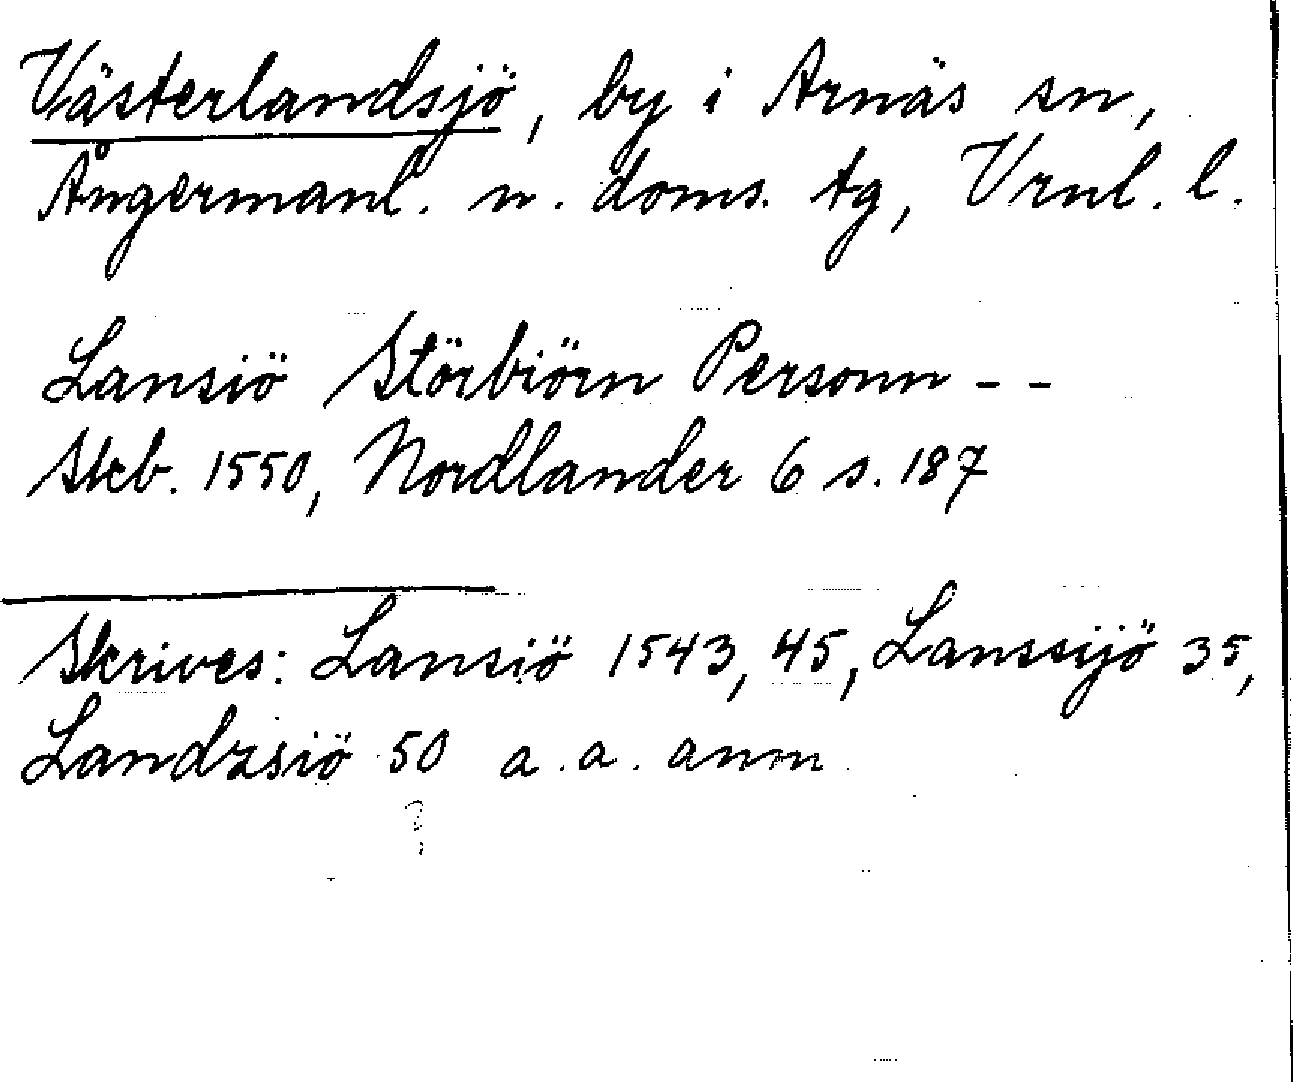 Västerlandsjö, by i Arnäs sn,
Ångermanl. n. doms. tg, Vrnl. l.
Lansiö Störbiörn Personn - -
Skb. 1550, Nordlander 6 s. 187
Skrives: Lansiö 1543, 45, Lanssijö 35,
Landzsiö 50 a.a. anm
?